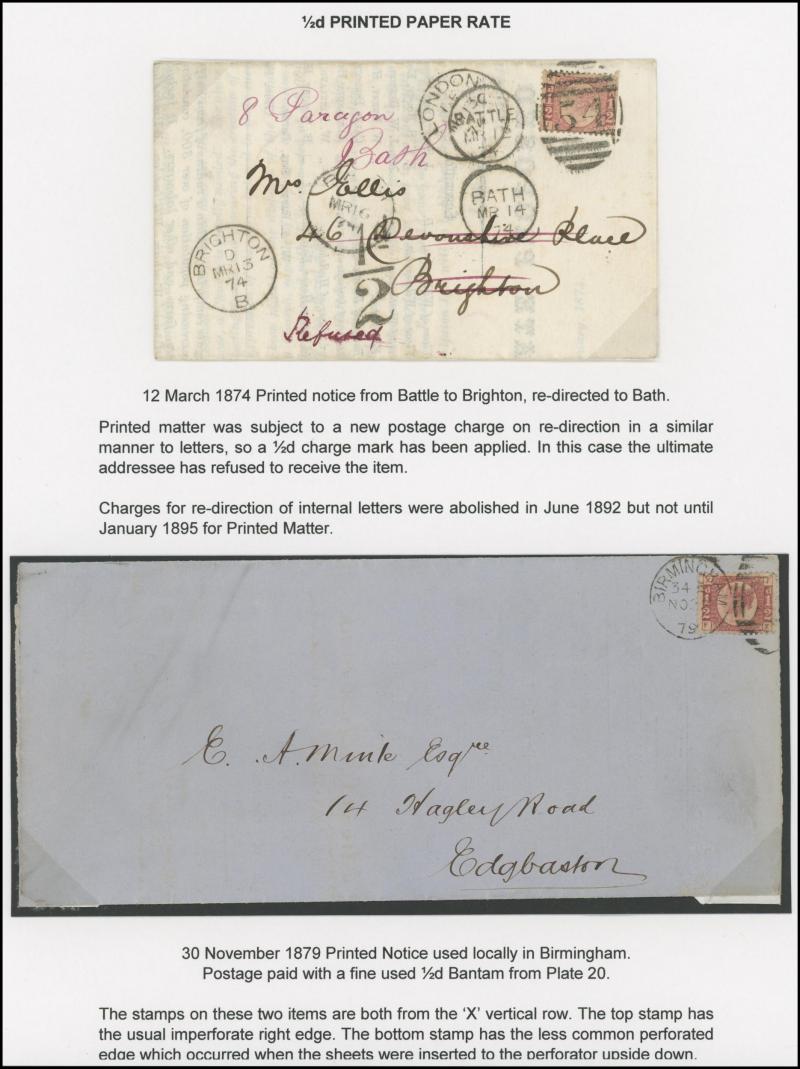 ½d PRINTED PAPER RATE
LONDON
BATTL
54
8 Paragon
Bath
Mrs
MR 16
BATH
MR 14
74
46 Devonshire Place
BRIGHTON
D
MR 13
74
B
1
2
Brighton
Refused
12 March 1874 Printed notice from Battle to Brighton, re-directed to Bath.
Printed matter was subject to a new postage charge on re-direction in a similar
manner to letters, so a ½d charge mark has been applied. In this case the ultimate
addressee has refused to receive the item.
Charges for re-direction of internal letters were abolished in June 1892 but not until
January 1895 for Printed Matter.
BIRMINGH
34
NO
79
E. A. Minik Esqre
14 Hagley Road
Edgbaston
30 November 1879 Printed Notice used locally in Birmingham.
Postage paid with a fine used ½d Bantam from Plate 20.
The stamps on these two items are both from the ‘X’ vertical row. The top stamp has
the usual imperforate right edge. The bottom stamp has the less common perforated
edge which occurred when the sheets were inserted to the perforator upside down.